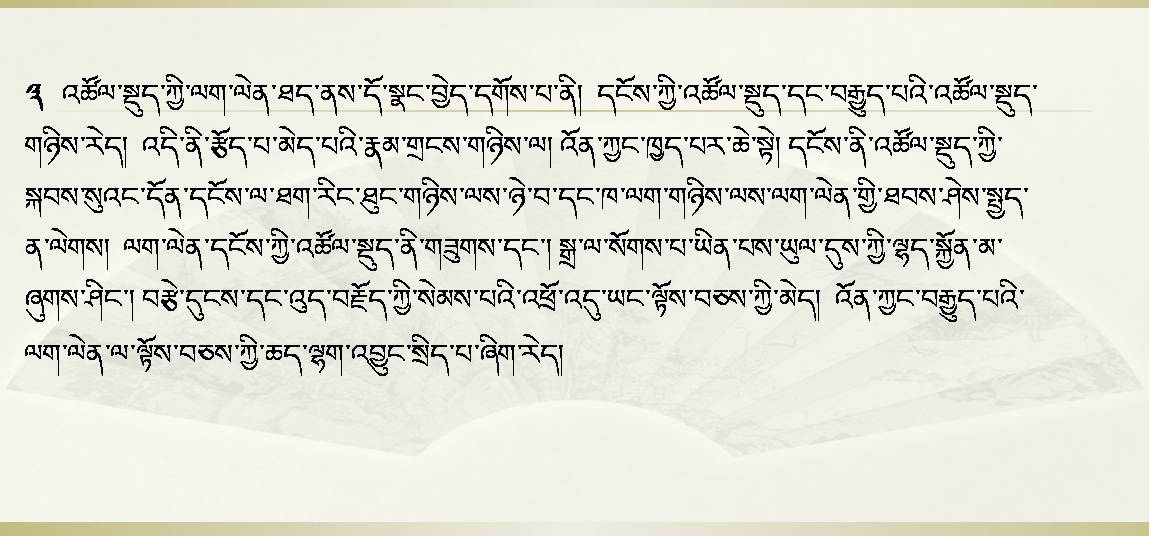 ༢ འཚོལ་སྡུད་ཀྱི་ལག་ལེན་ཐད་ནས་དོ་སྣང་བྱེད་དགོས་པ་ནི། དངོས་ཀྱི་འཚོལ་སྡུད་དང་བརྒྱུད་པའི་འཚོལ་སྡུད་
གཉིས་རེད། འདི་ནི་རྩོད་པ་མེད་པའི་རྣམ་གྲངས་གཉིས་ལ། འོན་ཀྱང་ཁྱད་པར་ཆེ་སྟེ། དངོས་ནི་འཚོལ་སྡུད་ཀྱི་
སྐབས་སུའང་དོན་དངོས་ལ་ཐག་རིང་ཐུང་གཉིས་ལས་ཉེ་བ་དང་ཁ་ལག་གཉིས་ལས་ལག་ལེན་གྱི་ཐབས་ཤེས་སྤྱད་
ན་ལེགས། ལག་ལེན་དངོས་ཀྱི་འཚོལ་སྡུད་ནི་གཟུགས་དང་། སྒྲ་ལ་སོགས་པ་ཡིན་པས་ཡུལ་དུས་ཀྱི་ལྷད་སྐྱོན་མ་
ཞུགས་ཤིང་། བརྩེ་དུངས་དང་འུད་བརྗོད་ཀྱི་སེམས་པའི་འཕྲོ་འདུ་ཡང་ལྟོས་བཅས་ཀྱི་མེད། འོན་ཀྱང་བརྒྱུད་པའི་
ལག་ལེན་ལ་ལྟོས་བཅས་ཀྱི་ཆད་ལྷག་འབྱུང་སྲིད་པ་ཞིག་རེད།